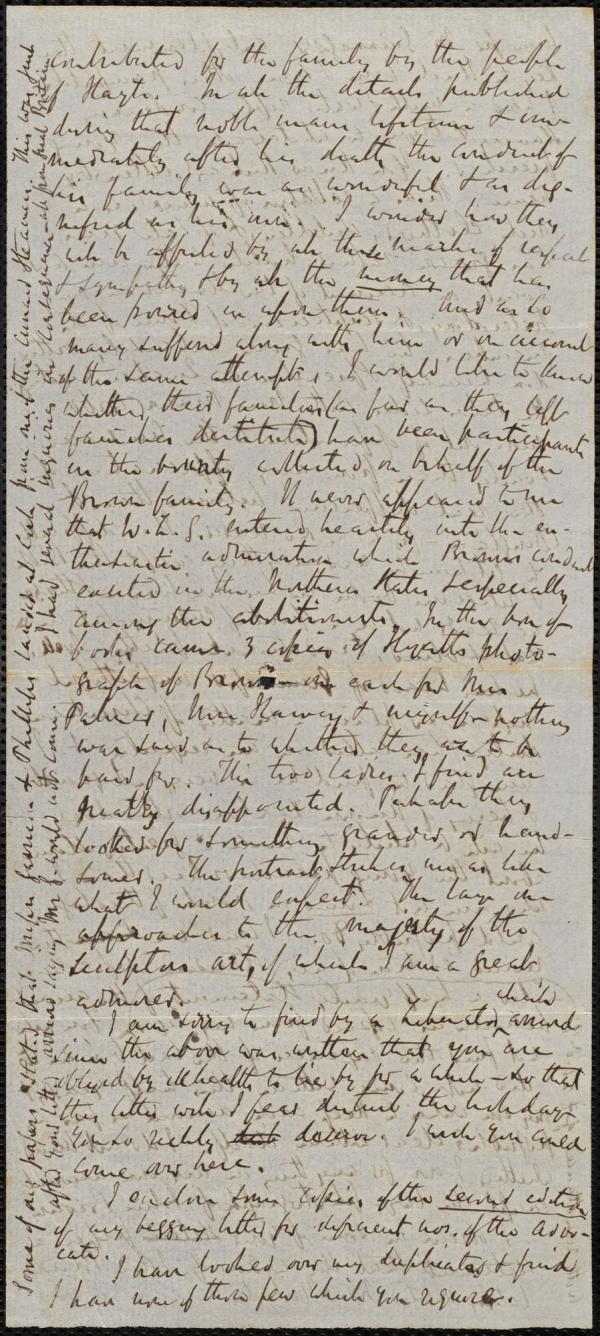 contributed for the family by the people
of Hayti. In all the details published
during that noble man's lifetime & im-
mediately after his death the conduct of
his family was as wonderful & as dig-
nified as his own. I wonder how they
will be affected by all these marks of respect
& sympathy & by all the money that has
been poured in upon them. And as so
many suffered along with him or on account
of the same attempt, I would like to know
whether their families (as far as they left
families destitute) have been participants
in the bounty collected on behalf of the
Brown family. It never appeared to me
that W.L.G. entered heartily into the en-
thusiastic admiration which Brown's conduct
excited in the Northern States & especially
among the abolitionists. In the box of
books came 3 copies of Hyatt's photo-
graph of Brown — one each for Miss
Palmer, Mrs. Harvey & myself — nothing
was said as to whether they were to be
paid for. The two ladies I find are
greatly disappointed. Perhaps they
looked for something grander or hand-
somer. The portrait strikes me as like
what I would expect. The large one
approaches to the majesty of the
sculptor's art, of which I am a great
admirer.
I am sorry to find by a Liberator which arrived
since the above was written that you are
obliged by ill health to lie by for a while — so that
this letter will I fear disturb the holiday
you so richly deserve. I wish you could
come over here.
I enclose some copies of the second edition
of my begging letter for different nos. of the Advo-
cate.
I have looked over my duplicates & find
I have none of those few which you require.
Some of our papers stated that Messrs Garrison & Phillips landed at Cork from out the Cunard Steamer. This was just
after your letter arrived saying Mr G. would not come. I had several inquiries in consequence